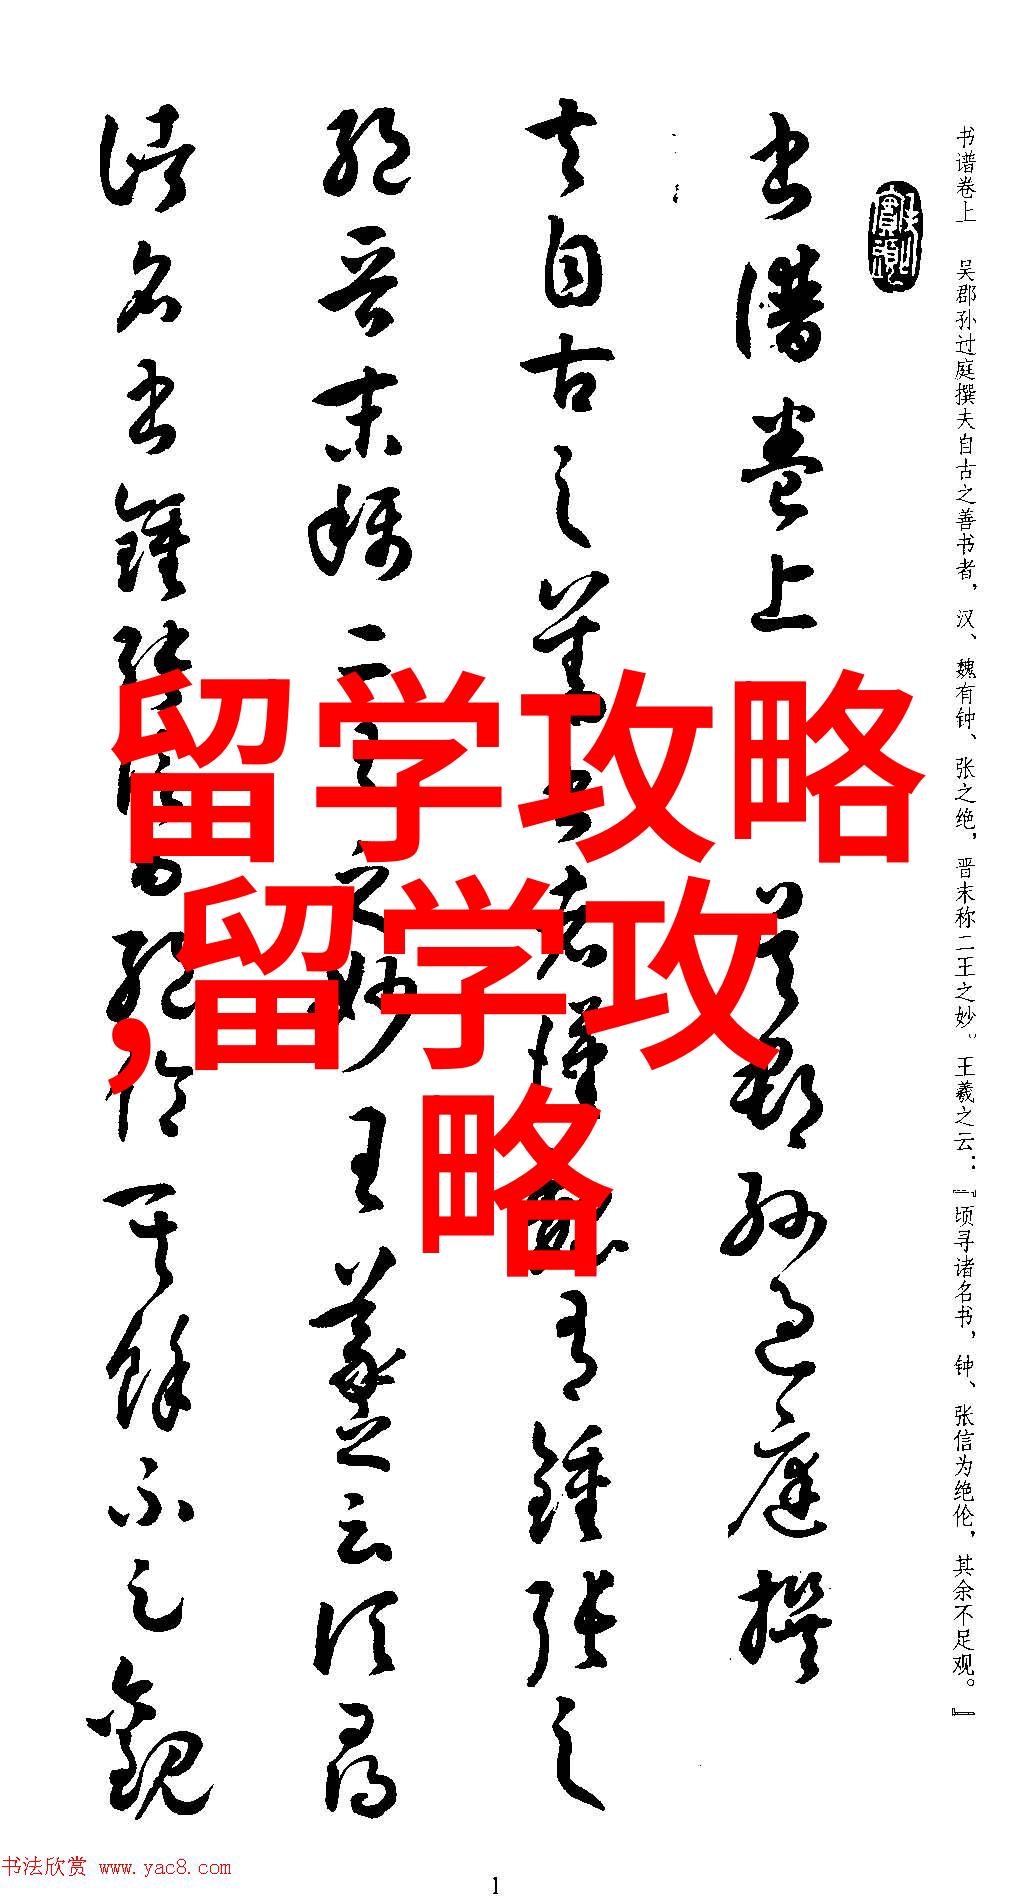 书谱卷上 吴郡孙过庭撰夫自古之善书者，汉、魏有钟、张之绝，晋末称二王之妙。王羲之云：『顷寻诸名书，钟、张信为绝伦，其余不足观。』
書譜卷上 吴郡孙过庭撰
夫自古之善書者漢魏有鍾張之
絕晋末稱二王之妙王羲之云頃尋
諸名書鍾張信為絕倫其餘不足觀
留学攻略
,留学攻
略
书法欣赏 www.yac8.com
1